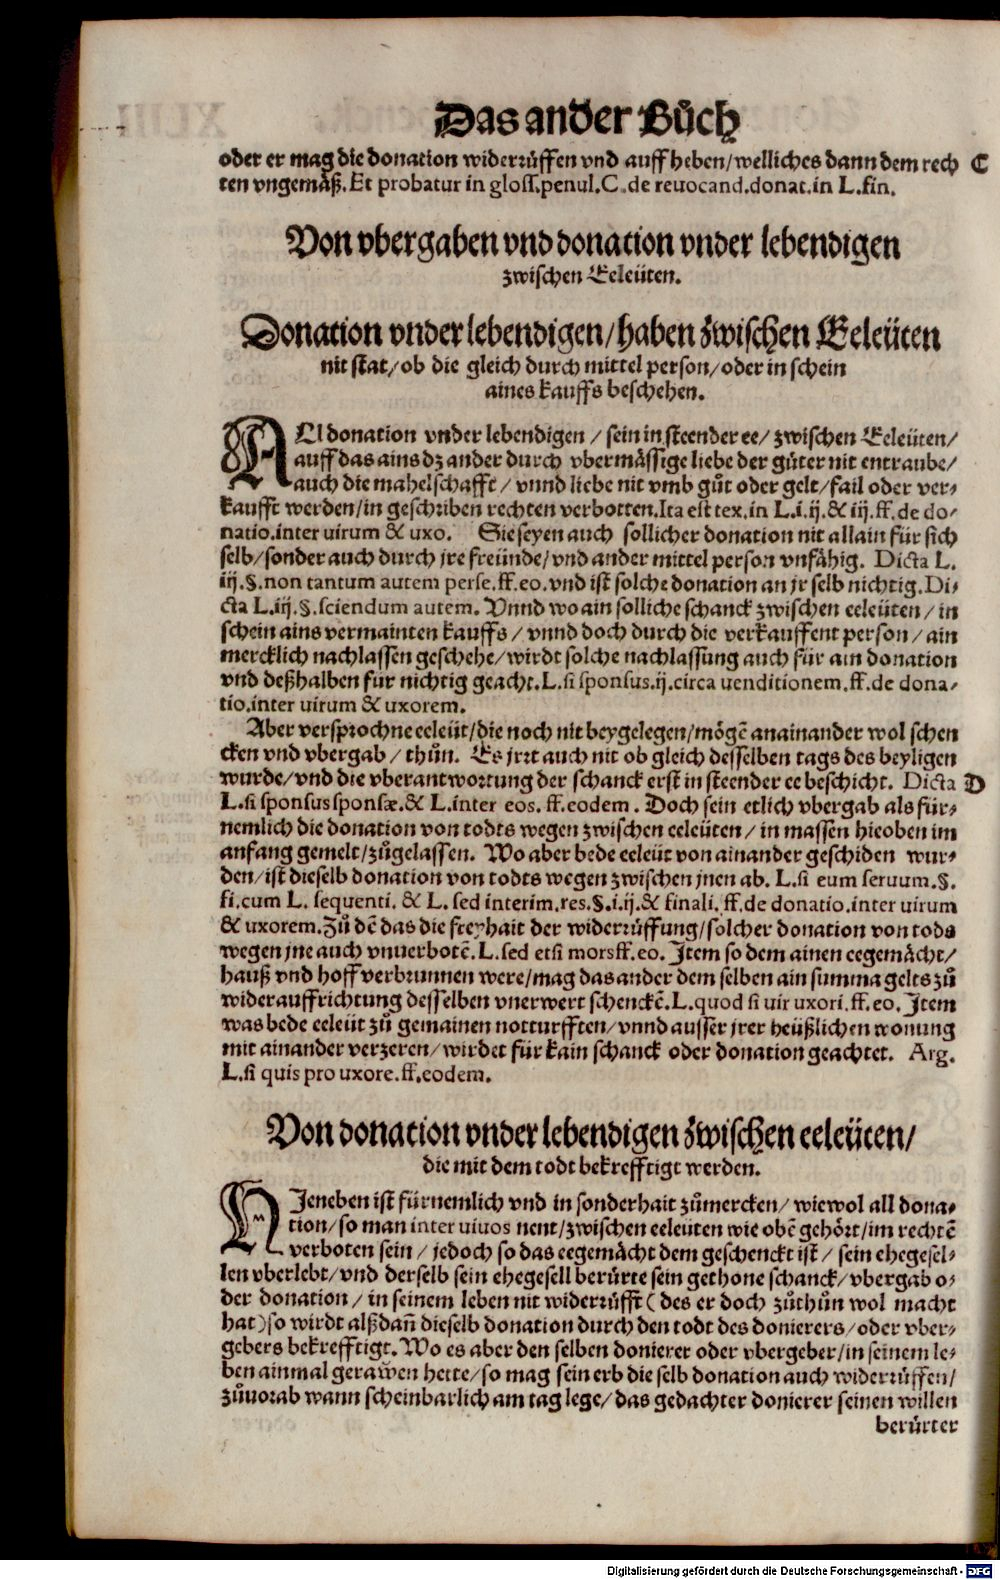 Das ander Bůch
oder er mag die donation widerrüffen vnd auffheben/welliches dann dem rech C
ten vngemäß. Et probatur in gloss. penul. C. de reuocand. donat. in L. fin.
Von vbergaben vnd donation vnder lebendigen
zwischen Eeleüten.
Donation vnder lebendigen/haben zwischen Eeleüten
nit stat/ob die gleich durch mittel person/oder in schein
aines kauffs beschehen.
ALl donation vnder lebendigen / sein in steender ee/ zwischen Eeleüten/
auff das ains dz ander durch vbermässige liebe der güter nit entraube/
auch die mahelschafft / vnnd liebe nit vmb gůt oder gelt/fail oder ver-
kaufft werden/in geschriben rechten verbotten. Ita est tex. in L. i. ij. & iij. ff. de do-
natio. inter uirum & uxo. Sie seyen auch sollicher donation nit allain für sich
selb/sonder auch durch jre freünde/vnd ander mittel person vnfähig. Dicta L.
iij. §. non tantum autem per se. ff. eo. vnd ist solche donation an jr selb nichtig. Di-
cta L. iij. §. sciendum autem. Vnnd wo ain solliche schanck zwischen eeleüten / in
schein ains vermainten kauffs / vnnd doch durch die verkauffent person / ain
mercklich nachlassen geschehe/wirdt solche nachlassung auch für ain donation
vnd deßhalben für nichtig geacht. L. si sponsus. ij. circa uenditionem. ff. de dona-
tio. inter uirum & uxorem.
Aber versprochne eeleüt/die noch nit beygelegen/mögē anainander wol schen
cken vnd vbergab / thůn. Es jrrt auch nit ob gleich desselben tags des beyligen
wurde/vnd die vberantwortung der schanck erst in steender ee beschicht. Dicta D
L. si sponsus sponsæ. & L. inter eos. ff. eodem. Doch sein etlich vbergab als für-
nemlich die donation von todts wegen zwischen eeleüten / in massen hieoben im
anfang gemelt/zůgelassen. Wo aber bede eeleüt von ainander geschiden wur-
den/ist dieselb donation von todts wegen zwischen jnen ab. L. si eum seruum. §.
si. cum L. sequenti. & L. sed interim. res. §. i. ij. & finali. ff. de donatio. inter uirum
& uxorem. Zů dē das die freyhait der widerrüffung/solcher donation von tods
wegen jne auch vnuerbotē. L. sed etsi mors ff. eo. Item so dem ainen eegemächt/
hauß vnd hoff verbrunnen were/mag das ander dem selben ain summa gelts zů
widerauffrichtung desselben vnerwert schenckē. L. quod si uir uxori. ff. eo. Item
was bede eeleüt zů gemainen notturfften/vnnd ausser jrer heüßlichen wonung
mit ainander verzeren/wirdet für kain schanck oder donation geachtet. Arg.
L. si quis pro uxore. ff. eodem.
Von donation vnder lebendigen zwischen eeleüten/
die mit dem todt bekrefftigt werden.
HIeneben ist fürnemlich vnd in sonderhait zůmercken/ wiewol all dona-
tion/so man inter uiuos nent/zwischen eeleüten wie obē gehört/im rechtē
verboten sein / jedoch so das eegemächt dem geschenckt ist / sein ehegesel-
len vberlebt/vnd derselb sein ehegesell berürte sein gethone schanck/vbergab o-
der donation / in seinem leben nit widerrüfft ( des er doch zůthůn wol macht
hat) so wirdt alßdañ dieselb donation durch den todt des donierers/oder vber-
gebers bekrefftigt. Wo es aber den selben donierer oder vbergeber/in seinem le-
ben ainmal gerawen hette/so mag sein erb die selb donation auch widerrüffen/
zůuorab wann scheinbarlich am tag lege/das gedachter donierer seinen willen
berürter
Digitalisierung gefördert durch die Deutsche Forschungsgemeinschaft - DFG